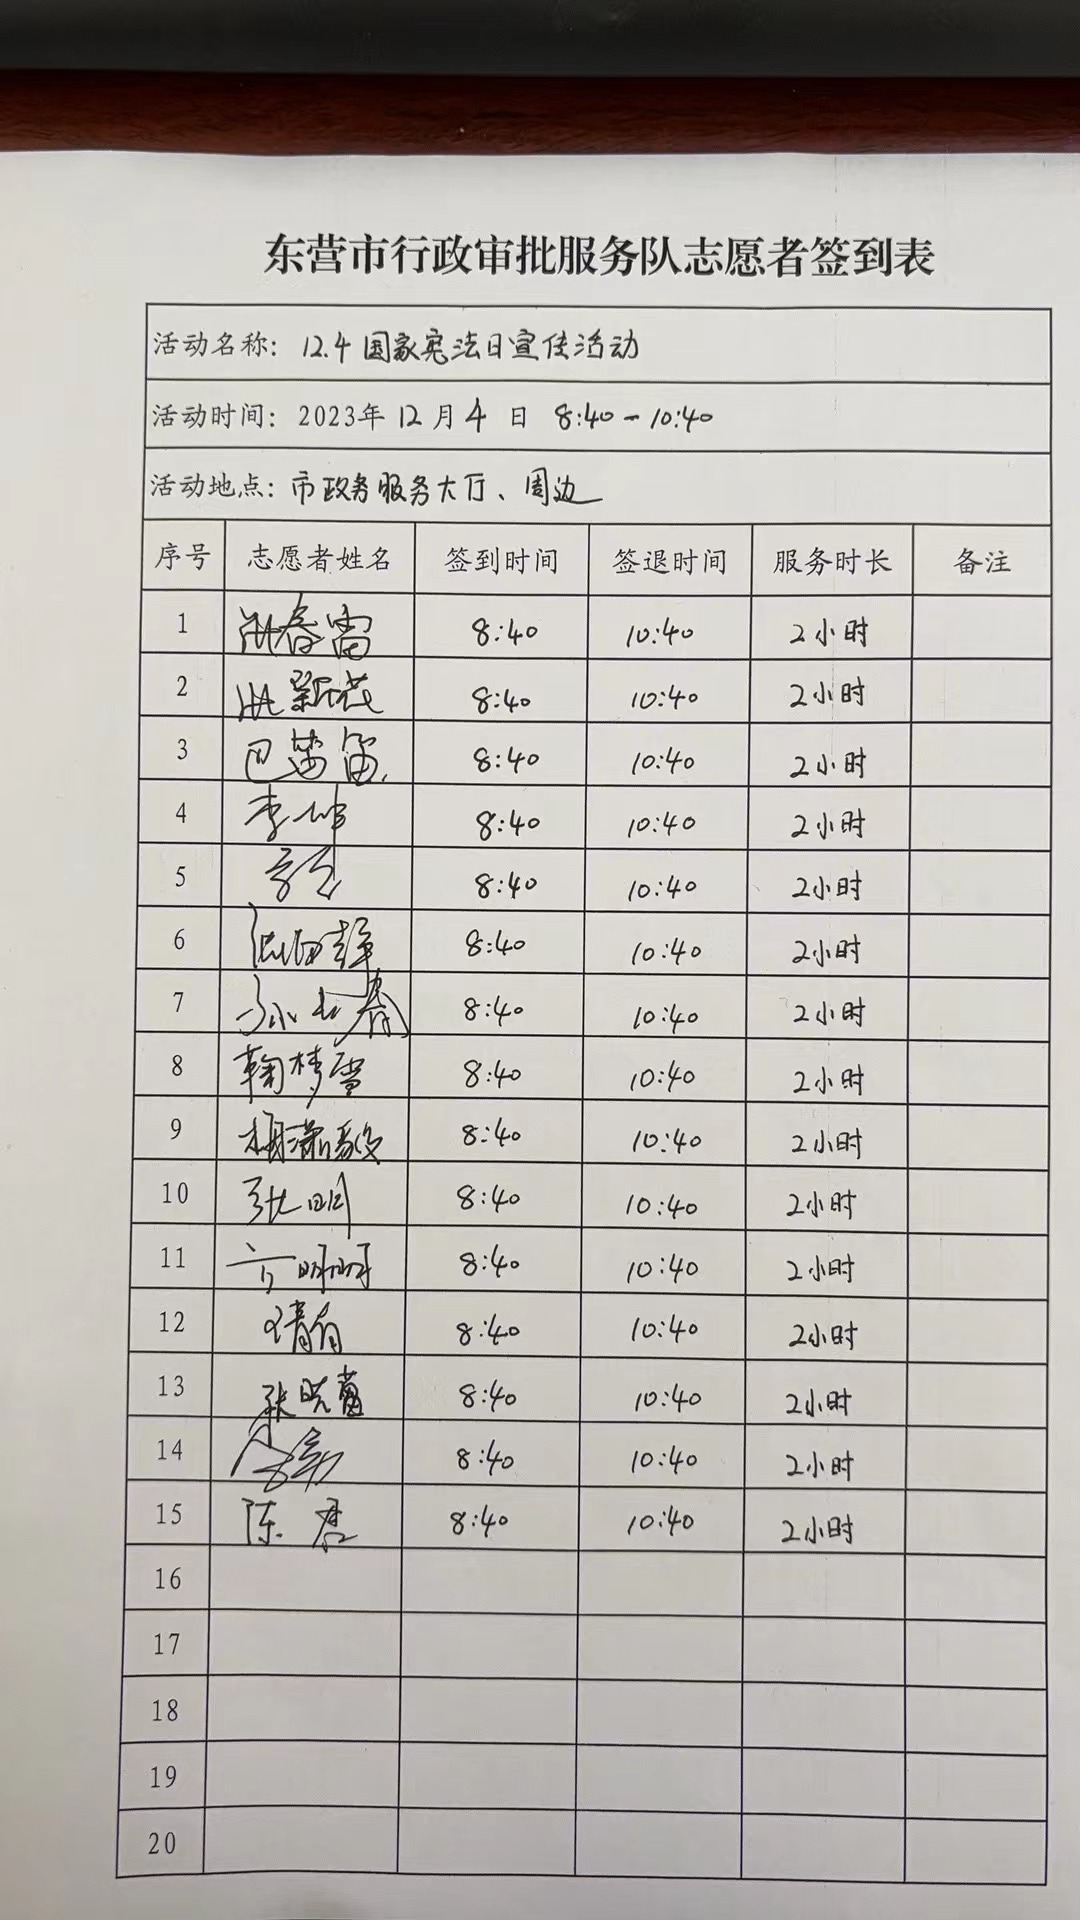 东营市行政审批服务队志愿者签到表
活动名称：12.4国家宪法日宣传活动
活动时间：2023年12月4日 8:40-10:40
活动地点：市政务服务大厅、周边
序号 志愿者姓名 签到时间 签退时间 服务时长 备注
1 春雷 8:40 10:40 2小时
2 8:40 10:40 2小时
3 巴笛笛 8:40 10:40 2小时
4 李坤 8:40 10:40 2小时
5 8:40 10:40 2小时
6 8:40 10:40 2小时
7 8:40 10:40 2小时
8 鞠梦雪 8:40 10:40 2小时
9 8:40 10:40 2小时
10 张明 8:40 10:40 2小时
11 8:40 10:40 2小时
12 8:40 10:40 2小时
13 张晓 8:40 10:40 2小时
14 8:40 10:40 2小时
15 陈君 8:40 10:40 2小时
16
17
18
19
20